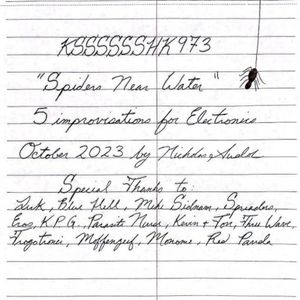 KSSSSSSHK973
"Spiders Near Water"
5 improvisations for Electronics
October 2023 by Nicholas
Special Thanks to:
Blue Hell, Mike Sidnam,
Eros, K.P.G., Parasite Nurse, Kevin + Tori, Three Wave,
Frogstronic, Monome, Red Panda